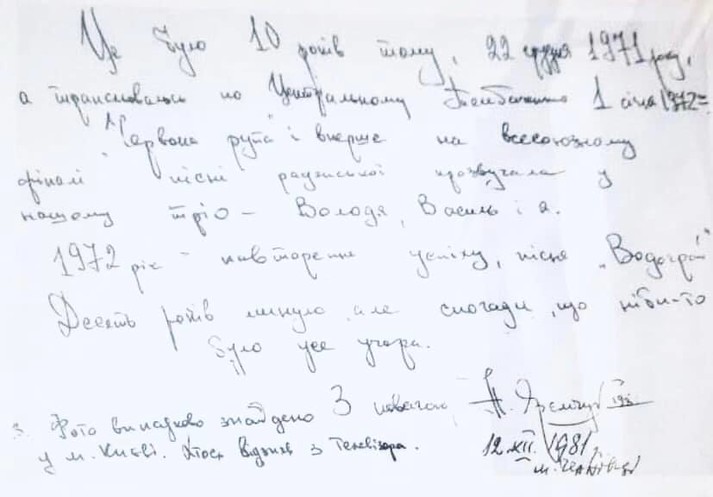 Це було 10 років тому, 22 грудня 1971 року,
а транслювалось по Центральному телебаченню 1 січня 1972
"Червона рута" і вперше на всесоюзному
фіналі пісні радянської прозвучала у
нашому тріо – Володя, Василь і я.
1972 рік – повторення успіху, пісня „Водограй"
Десять років минуло, але спогади, що ніби-то
було усе учора.
З повагою, Н. Яремчук
3. Фото випадково знайдено
у м. Києві. Хтось відзняв з телевізора.
12.XII.1981,
м. Чернівці